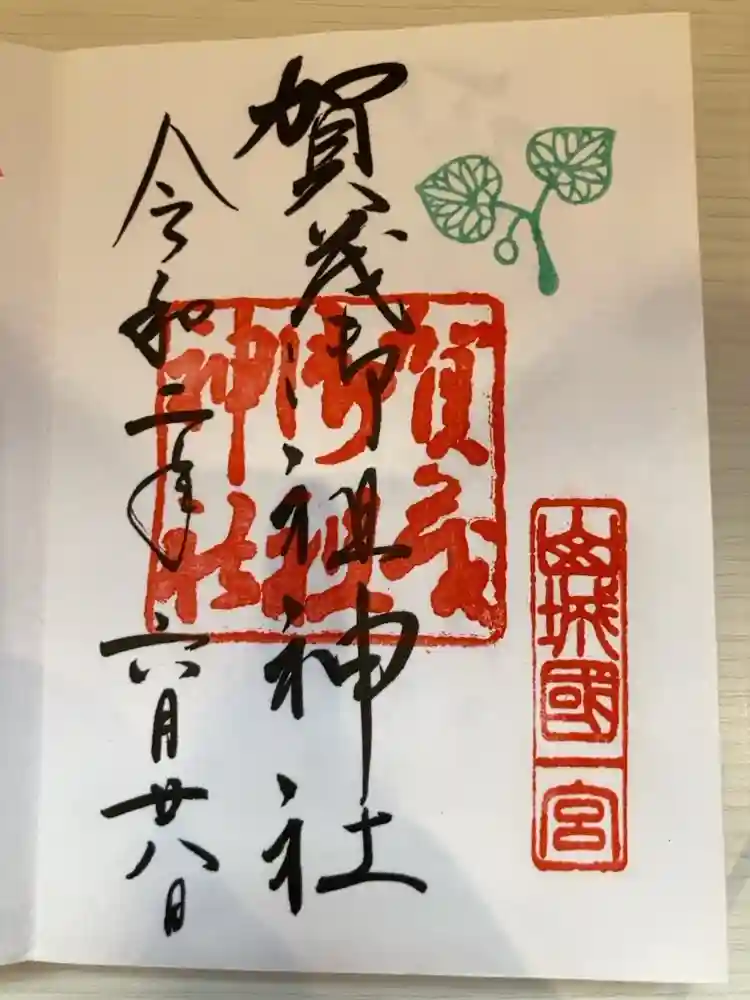 山城國一宮
賀茂御祖神社
賀茂
御祖
神社
令和二年六月廿八日